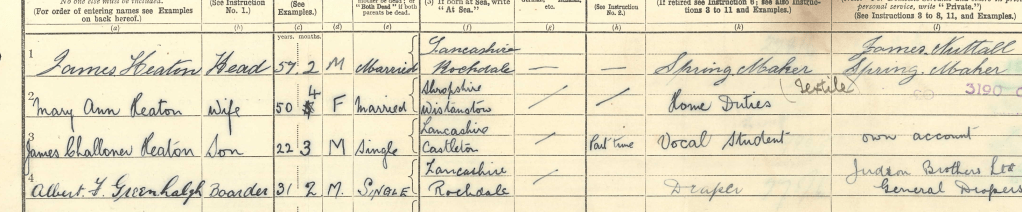 No one else must be included.
(For order of entering names see Examples on back hereof.)
(See Instruction No. 1.)
(See Examples.)
"Both Dead" if both parents be dead.)
(3) If born at Sea, write "At Sea."
(See Instruction No. 2.)
If retired see Instruction 6; see also Instructions 3 to 11 and Examples.)
personal service, write "Private."
(See Instructions 3 to 8, 11, and Examples.)
(a) (b) (c) (d) (e) (f) (g) (h) (k) (l)
years. months.
1 James Heaton Head 57 2 M Married Lancashire Rochdale — — Spring Maker James Nuttall Spring Maker
(Textile) 3190
2 Mary Ann Heaton Wife 50 4 F Married Shropshire Wistanstow / / Home Duties
3 James Challoner Heaton Son 22 3 M Single Lancashire Castleton / Part time Vocal Student own account
4 Albert F. Greenhalgh Boarder 31 2 M. SINGLE Lancashire Rochdale / Draper Judson Brothers Ltd General Drapers